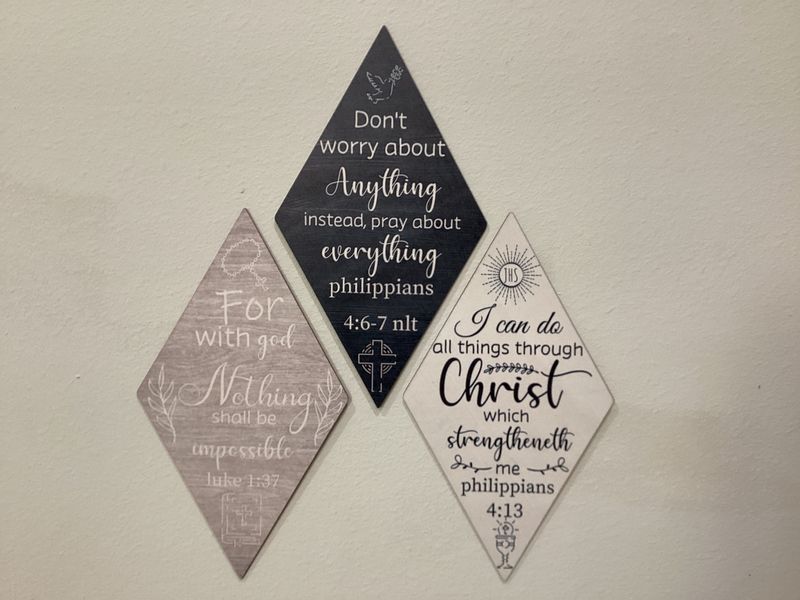 Don't
worry about
Anything
instead, pray about
everything
philippians
4:6-7 nlt
For
with god
Nothing
shall be
impossible
luke 1:37
JHS
I can do
all things through
Christ
which
strengtheneth
me
philippians
4:13